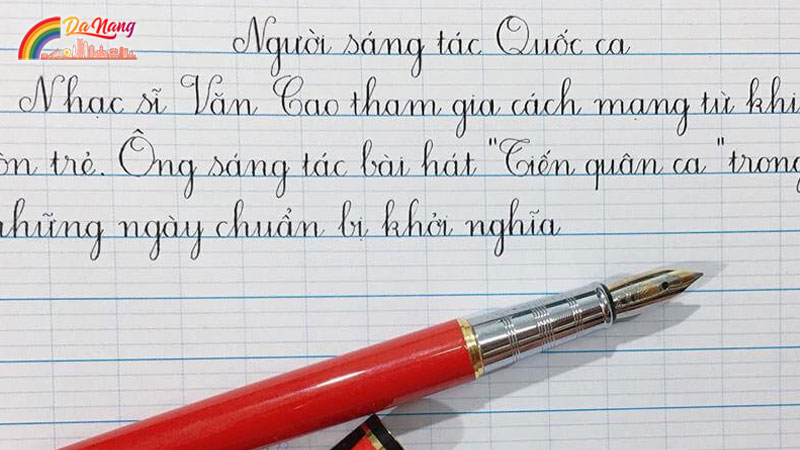 Da Nang
Người sáng tác Quốc ca
Nhạc sĩ Văn Cao tham gia cách mạng từ khi
òn trẻ. Ông sáng tác bài hát "Tiến quân ca" trong
những ngày chuẩn bị khởi nghĩa